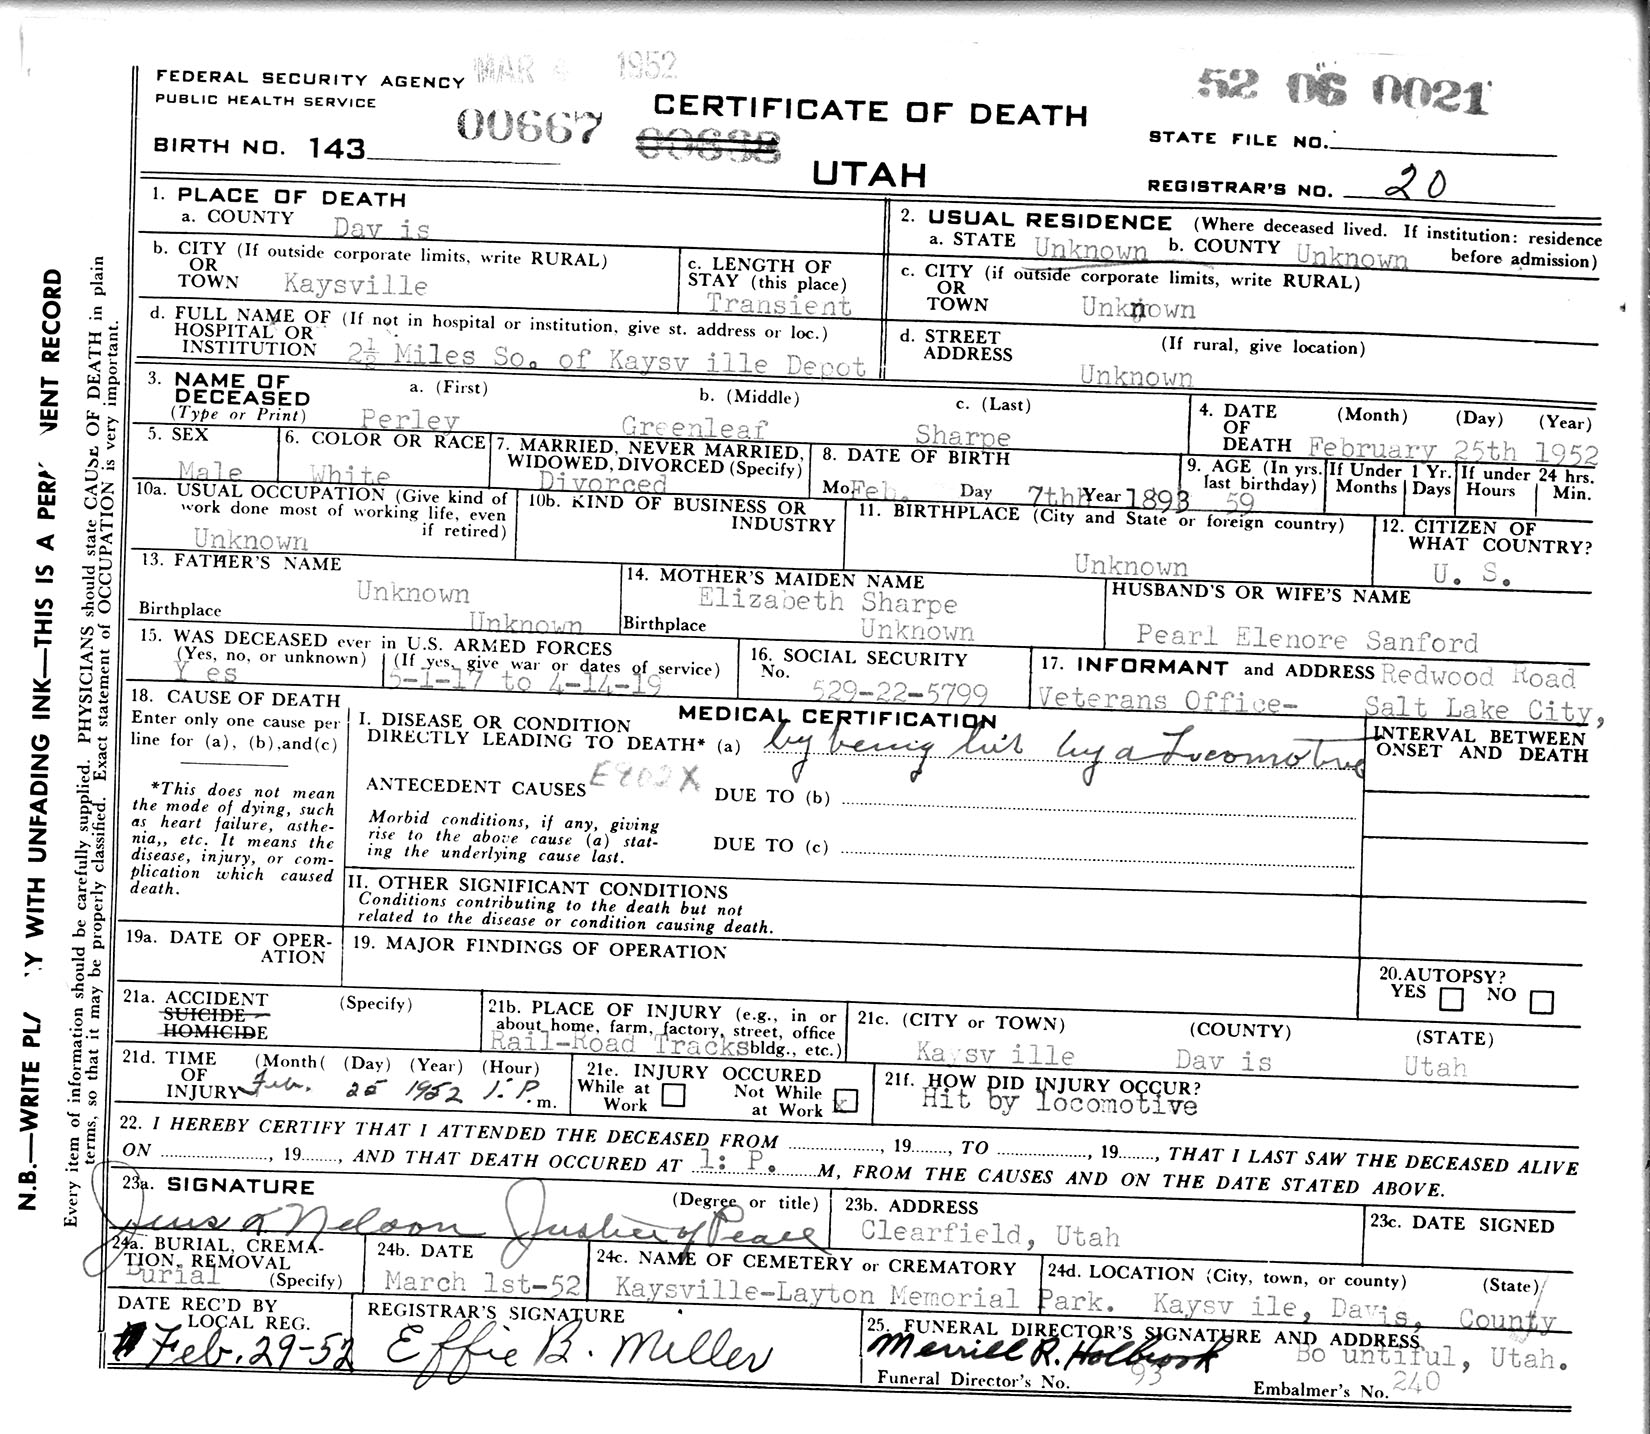 MAR 1952
FEDERAL SECURITY AGENCY
PUBLIC HEALTH SERVICE
52 06 0021
00667
CERTIFICATE OF DEATH
STATE FILE NO.
BIRTH NO. 143
UTAH
REGISTRAR'S NO. 20
1. PLACE OF DEATH
a. COUNTY Dav is
2. USUAL RESIDENCE (Where deceased lived. If institution: residence
a. STATE Unknown b. COUNTY Unknown before admission)
b. CITY (If outside corporate limits, write RURAL)
OR
TOWN Kaysville
c. LENGTH OF
STAY (this place)
Transient
c. CITY (if outside corporate limits, write RURAL)
OR
TOWN Unknown
d. FULL NAME OF (If not in hospital or institution, give st. address or loc.)
HOSPITAL OR
INSTITUTION 2½ Miles So. of Kaysv ille Depot
d. STREET (If rural, give location)
ADDRESS
Unknown
3. NAME OF a. (First) b. (Middle) c. (Last)
DECEASED
(Type or Print) Perley Greenleaf Sharpe
4. DATE (Month) (Day) (Year)
OF
DEATH February 25th 1952
5. SEX
Male
6. COLOR OR RACE
White
7. MARRIED, NEVER MARRIED,
WIDOWED, DIVORCED (Specify)
Divorced
8. DATE OF BIRTH
Mo Feb. Day 7th Year 1893
9. AGE (In yrs.
last birthday)
59
If Under 1 Yr.
Months Days
If under 24 hrs.
Hours Min.
10a. USUAL OCCUPATION (Give kind of
work done most of working life, even
if retired)
Unknown
10b. KIND OF BUSINESS OR
INDUSTRY
11. BIRTHPLACE (City and State or foreign country)
Unknown
12. CITIZEN OF
WHAT COUNTRY?
U. S.
13. FATHER'S NAME
Unknown
Birthplace Unknown
14. MOTHER'S MAIDEN NAME
Elizabeth Sharpe
Birthplace Unknown
HUSBAND'S OR WIFE'S NAME
Pearl Elenore Sanford
15. WAS DECEASED ever in U.S. ARMED FORCES
(Yes, no, or unknown) (If yes, give war or dates of service)
Y es 5-1-17 to 4-14-19
16. SOCIAL SECURITY
No.
529-22-5799
17. INFORMANT and ADDRESS Redwood Road
Veterans Office- Salt Lake City,
18. CAUSE OF DEATH
Enter only one cause per
line for (a), (b),and(c)
*This does not mean
the mode of dying, such
as heart failure, asthe-
nia,, etc. It means the
disease, injury, or com-
plication which caused
death.
MEDICAL CERTIFICATION
I. DISEASE OR CONDITION
DIRECTLY LEADING TO DEATH* (a) by being hit by a Locomotive
INTERVAL BETWEEN
ONSET AND DEATH
ANTECEDENT CAUSES E802X DUE TO (b)
Morbid conditions, if any, giving
rise to the above cause (a) stat-
ing the underlying cause last.
DUE TO (c)
II. OTHER SIGNIFICANT CONDITIONS
Conditions contributing to the death but not
related to the disease or condition causing death.
19a. DATE OF OPER-
ATION
19. MAJOR FINDINGS OF OPERATION
20.AUTOPSY?
YES NO
21a. ACCIDENT (Specify)
SUICIDE
HOMICIDE
21b. PLACE OF INJURY (e.g., in or
about home, farm, factory, street, office
Rail-Road Tracks bldg., etc.)
21c. (CITY or TOWN) (COUNTY) (STATE)
Kaysv ille Dav is Utah
21d. TIME (Month( (Day) (Year) (Hour)
OF
INJURY Feb. 25 1952 1: P. m.
21e. INJURY OCCURED
While at Not While
Work at Work x
21f. HOW DID INJURY OCCUR?
Hit by locomotive
22. I HEREBY CERTIFY THAT I ATTENDED THE DECEASED FROM ..............., 19......., TO ..............., 19......., THAT I LAST SAW THE DECEASED ALIVE
ON ..............., 19......., AND THAT DEATH OCCURED AT 1: P. M, FROM THE CAUSES AND ON THE DATE STATED ABOVE.
23a. SIGNATURE (Degree or title)
Nelson Justice of Peace
23b. ADDRESS
Clearfield, Utah
23c. DATE SIGNED
24a. BURIAL, CREMA-
TION, REMOVAL
Burial (Specify)
24b. DATE
March 1st-52
24c. NAME OF CEMETERY OR CREMATORY
Kaysville-Layton Memorial Park.
24d. LOCATION (City, town, or county) (State)
Kaysv ile, Davis, County
DATE REC'D BY
LOCAL REG.
Feb. 29-52
REGISTRAR'S SIGNATURE
Effie B. Miller
25. FUNERAL DIRECTOR'S SIGNATURE AND ADDRESS
Merrill R. Holbrook Bo untiful, Utah.
Funeral Director's No. 93 Embalmer's No. 240
N.B.—WRITE PL Y WITH UNFADING INK—THIS IS A PER NENT RECORD
Every item of information should be carefully supplied. PHYSICIANS should state CAUSE OF DEATH in plain
terms, so that it may be properly classified. Exact statement of OCCUPATION is very important.